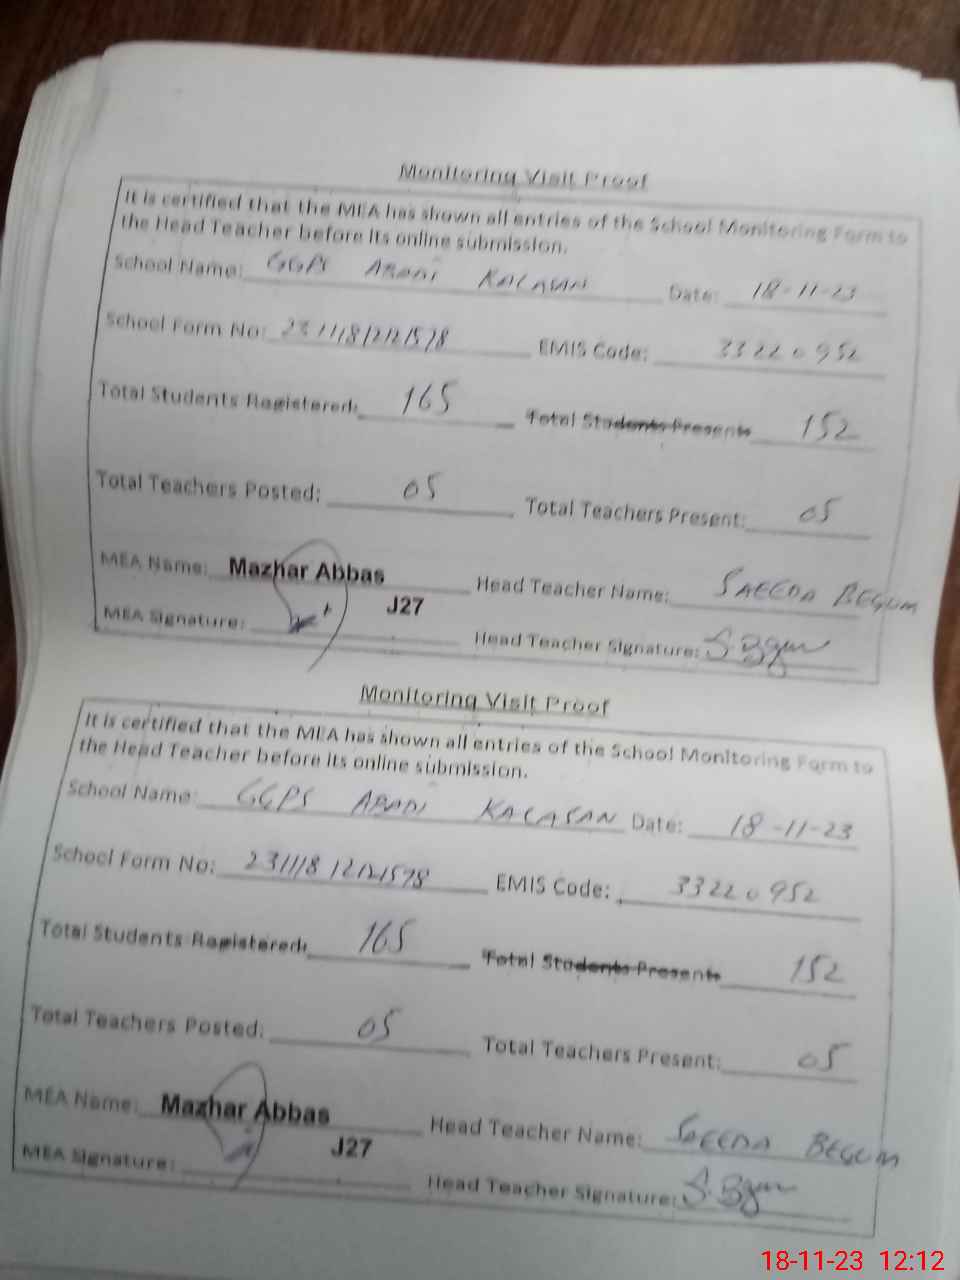 Monitoring Visit Proof
It is certified that the MEA has shown all entries of the School Monitoring Form to
the Head Teacher before its online submission.
School Name: GGPS ABADI KALASAN Date: 18-11-23
School Form No: 23111812121578 EMIS Code: 33220952
Total Students Registered: 165 Total Students Present: 152
Total Teachers Posted: 05 Total Teachers Present: 05
MEA Name: Mazhar Abbas Head Teacher Name: SAEEDA BEGUM
J27
MEA Signature: Head Teacher Signature: S.Bgum
Monitoring Visit Proof
It is certified that the MEA has shown all entries of the School Monitoring Form to
the Head Teacher before its online submission.
School Name: GGPS ABADI KALASAN Date: 18-11-23
School Form No: 23111812121578 EMIS Code: 33220952
Total Students Registered: 165 Total Students Present: 152
Total Teachers Posted: 05 Total Teachers Present: 05
MEA Name: Mazhar Abbas Head Teacher Name: SAEEDA BEGUM
J27
MEA Signature: Head Teacher Signature: S.Bgum
18-11-23 12:12